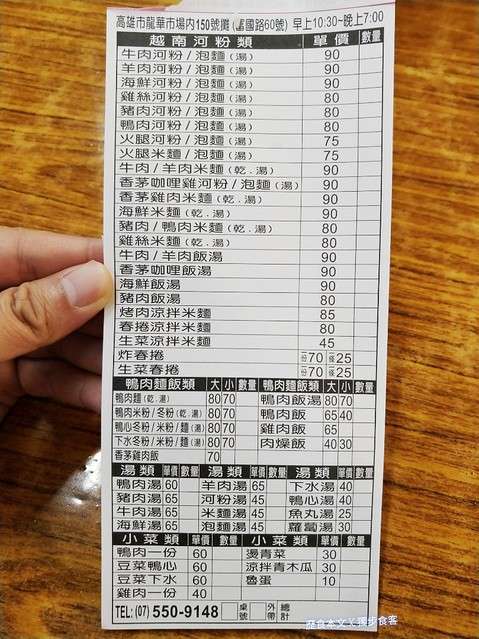 高雄市龍華市場內150號攤(富國路60號) 早上10:30~晚上7:00
越南河粉類 單價 數量
牛肉河粉/泡麵(湯) 90
羊肉河粉/泡麵(湯) 90
海鮮河粉/泡麵(湯) 90
雞絲河粉/泡麵(湯) 80
豬肉河粉/泡麵(湯) 80
鴨肉河粉/泡麵(湯) 80
火腿河粉/泡麵(湯) 75
火腿米麵/泡麵(湯) 75
牛肉/羊肉米麵(乾.湯) 90
香茅咖哩雞河粉/泡麵(湯) 90
香茅雞肉米麵(乾.湯) 90
海鮮米麵(乾.湯) 90
豬肉/鴨肉米麵(乾.湯) 80
雞絲米麵(乾.湯) 80
牛肉/羊肉飯湯 90
香茅咖哩飯湯 90
海鮮飯湯 90
豬肉飯湯 80
烤肉涼拌米麵 85
春捲涼拌米麵 80
生菜涼拌米麵 45
炸春捲 一份70 一條25
生菜春捲 一份70 一條25
鴨肉麵飯類 大 小 數量 鴨肉麵飯類 大 小 數量
鴨肉麵(乾.湯) 80 70 鴨肉飯湯 80 70
鴨肉米粉/冬粉(乾.湯) 80 70 鴨肉飯 65 40
鴨心冬粉/米粉/麵(湯) 80 70 雞肉飯 65
下水冬粉/米粉/麵(湯) 80 70 肉燥飯 40 30
香茅雞肉飯 70
湯類 單價 數量 湯類 單價 數量 湯類 單價 數量
鴨肉湯 60 羊肉湯 65 下水湯 40
豬肉湯 65 河粉湯 45 鴨心湯 40
牛肉湯 65 米麵湯 45 魚丸湯 25
海鮮湯 65 泡麵湯 45 蘿蔔湯 30
小菜類 單價 數量 小菜類 單價 數量
鴨肉一份 60 燙青菜 30
豆菜鴨心 60 涼拌青木瓜 30
豆菜下水 60 魯蛋 10
雞肉一份 40
TEL: (07) 550-9148 桌號 外帶 總計